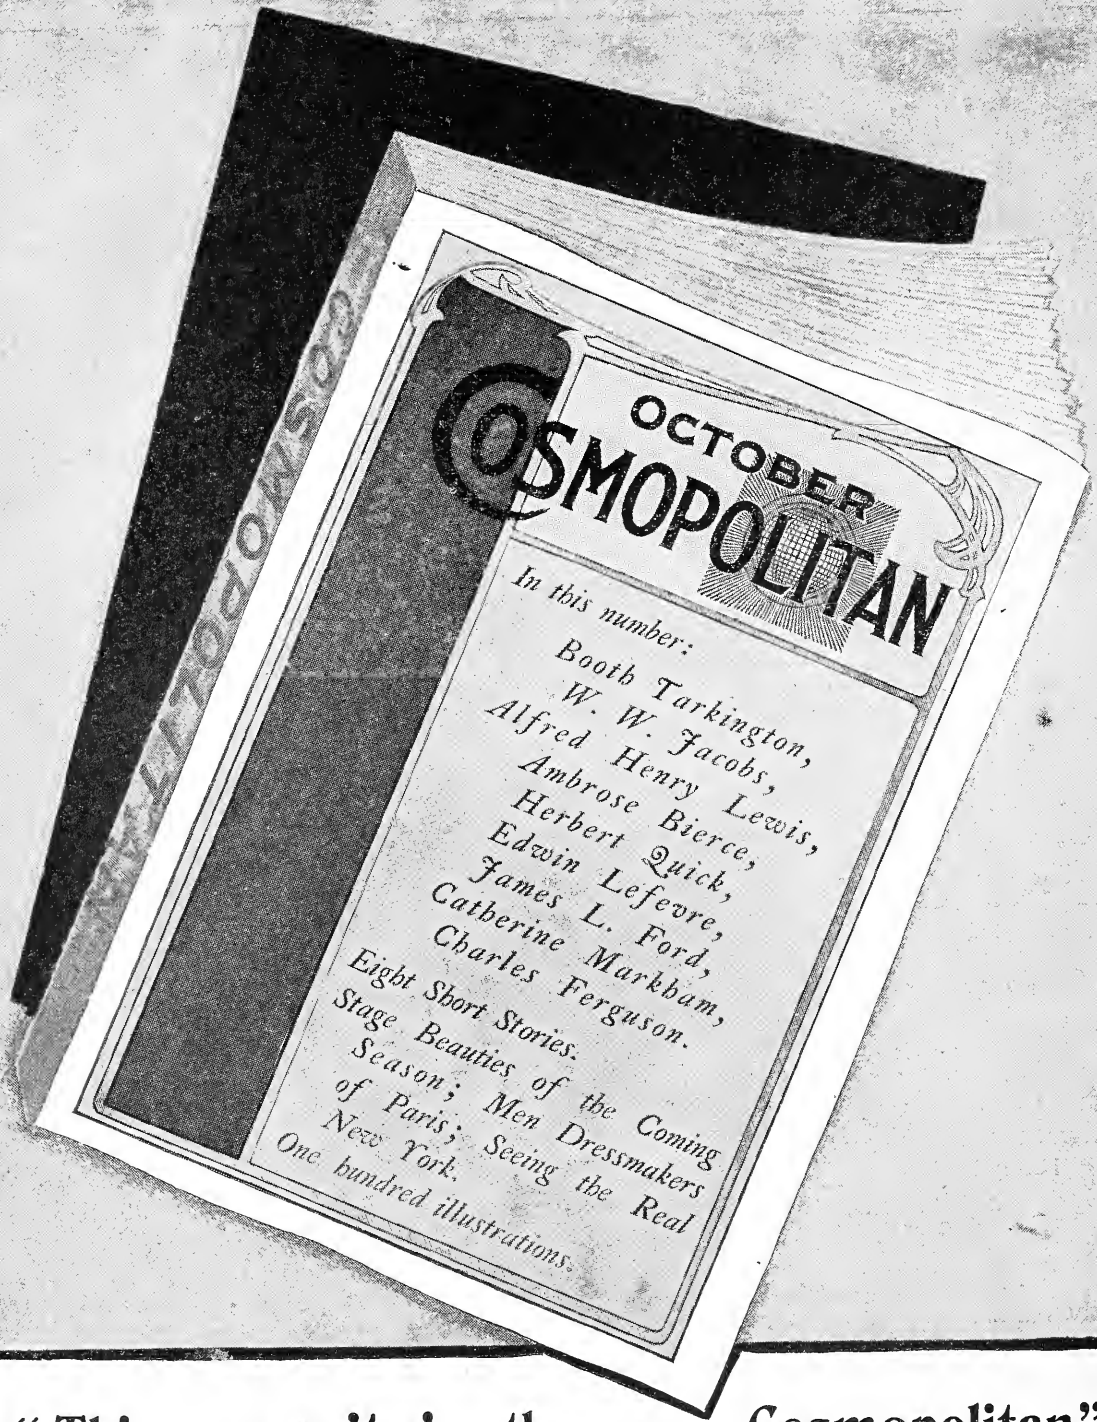 COSMOPOLITAN
OCTOBER
COSMOPOLITAN
In this number:
Booth Tarkington,
W. W. Jacobs,
Alfred Henry Lewis,
Ambrose Bierce,
Herbert Quick,
Edwin Lefevre,
James L. Ford,
Catherine Markham,
Charles Ferguson.
Eight Short Stories.
Stage Beauties of the Coming
Season; Men Dressmakers
of Paris; Seeing the Real
New York.
One hundred illustrations.
Cosmopolitan”